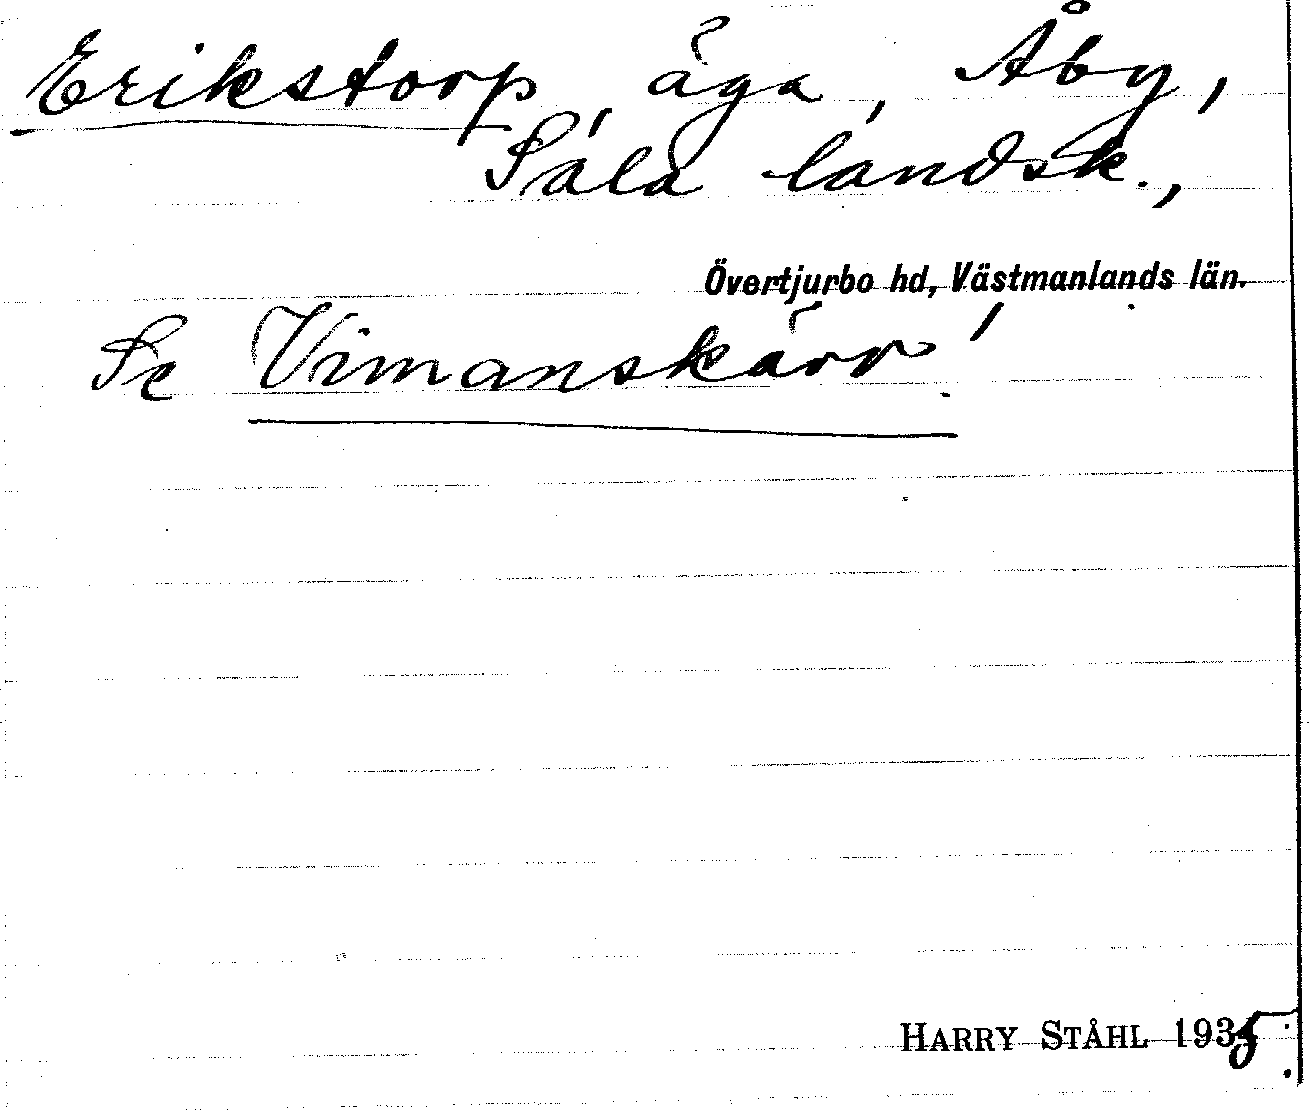 Erikstorp, äga, Åby,
Sala landsk.,
Övertjurbo hd, Västmanlands län.
Se Vimanskärr!
HARRY STÅHL 1935